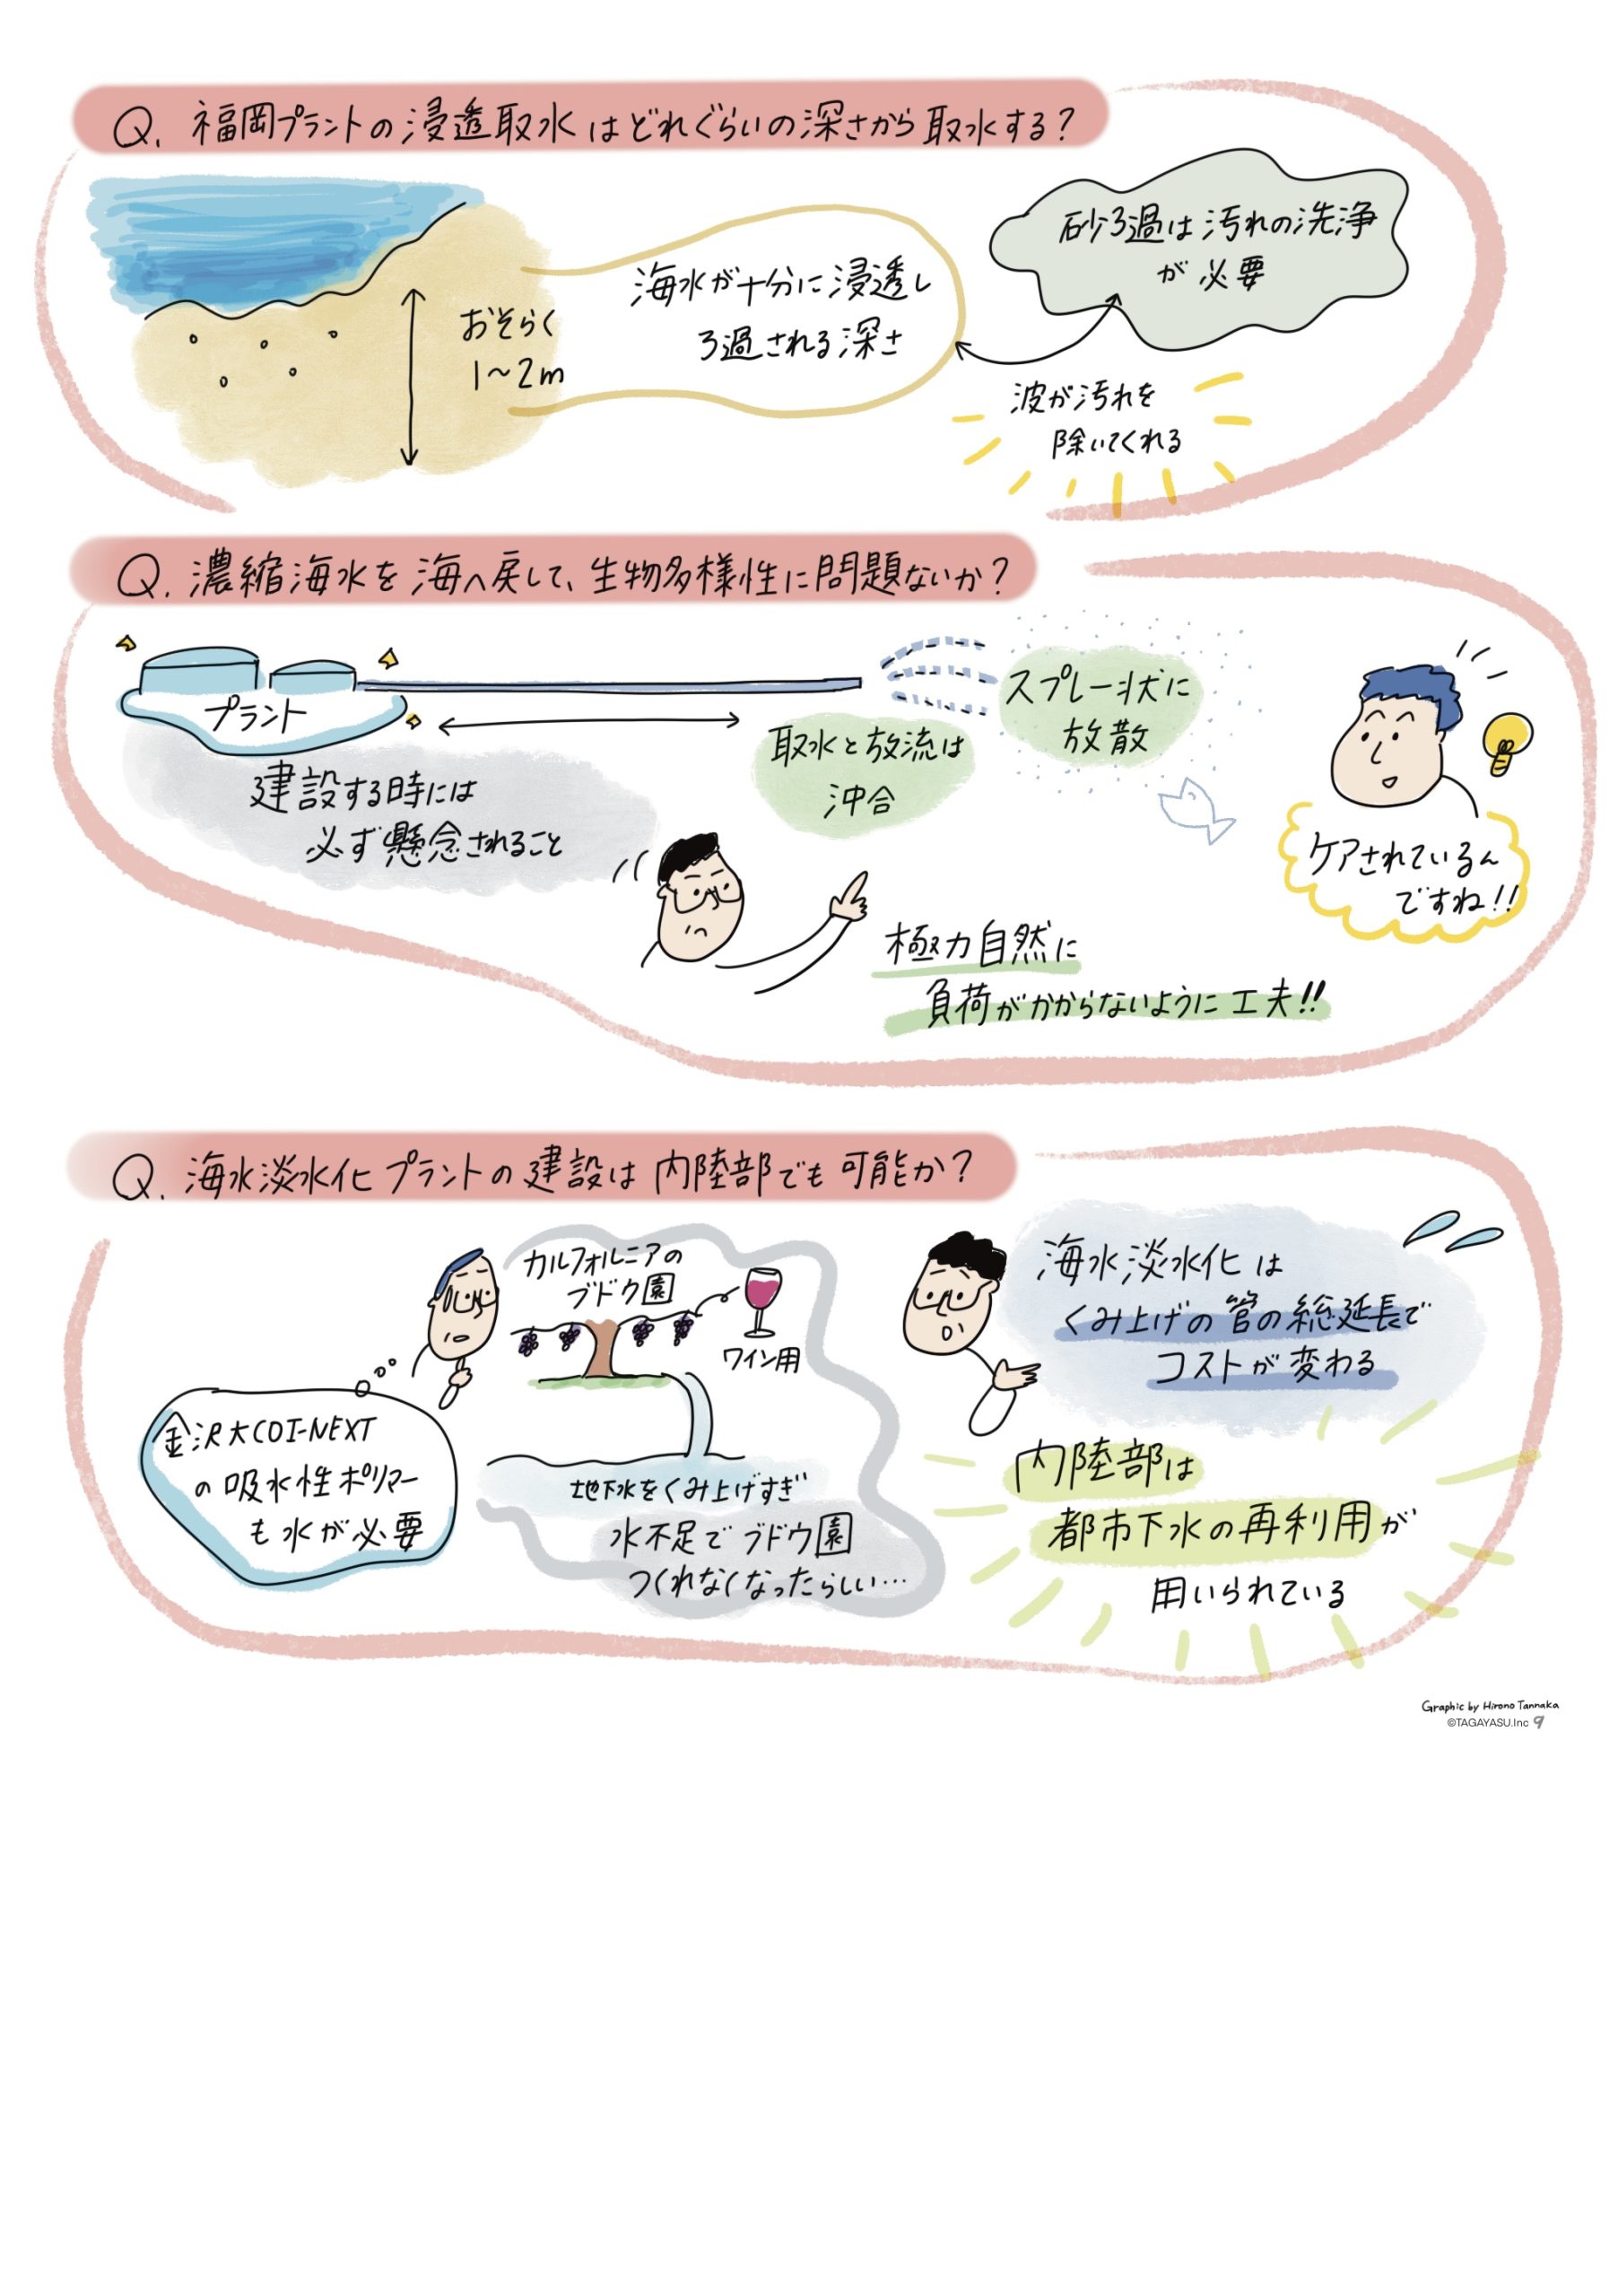 Q. 福岡プラントの浸透取水はどれぐらいの深さから取水する?
おそらく
1〜2m
海水が十分に浸透し
ろ過される深さ
砂ろ過は汚れの洗浄
が必要
波が汚れを
除いてくれる
Q. 濃縮海水を海へ戻して、生物多様性に問題ないか?
プラント
建設する時には
必ず懸念されること
取水と放流は
沖合
スプレー状に
放散
ケアされているん
ですね!!
極力自然に
負荷がかからないように工夫!!
Q. 海水淡水化プラントの建設は内陸部でも可能か?
金沢大COI-NEXT
の吸水性ポリマー
も水が必要
カルフォルニアの
ブドウ園
ワイン用
地下水をくみ上げすぎ
水不足でブドウ園
つくれなくなったらしい…
海水淡水化は
くみ上げの管の総延長で
コストが変わる
内陸部は
都市下水の再利用が
用いられている
Graphic by Hirono Tannaka
©TAGAYASU.Inc